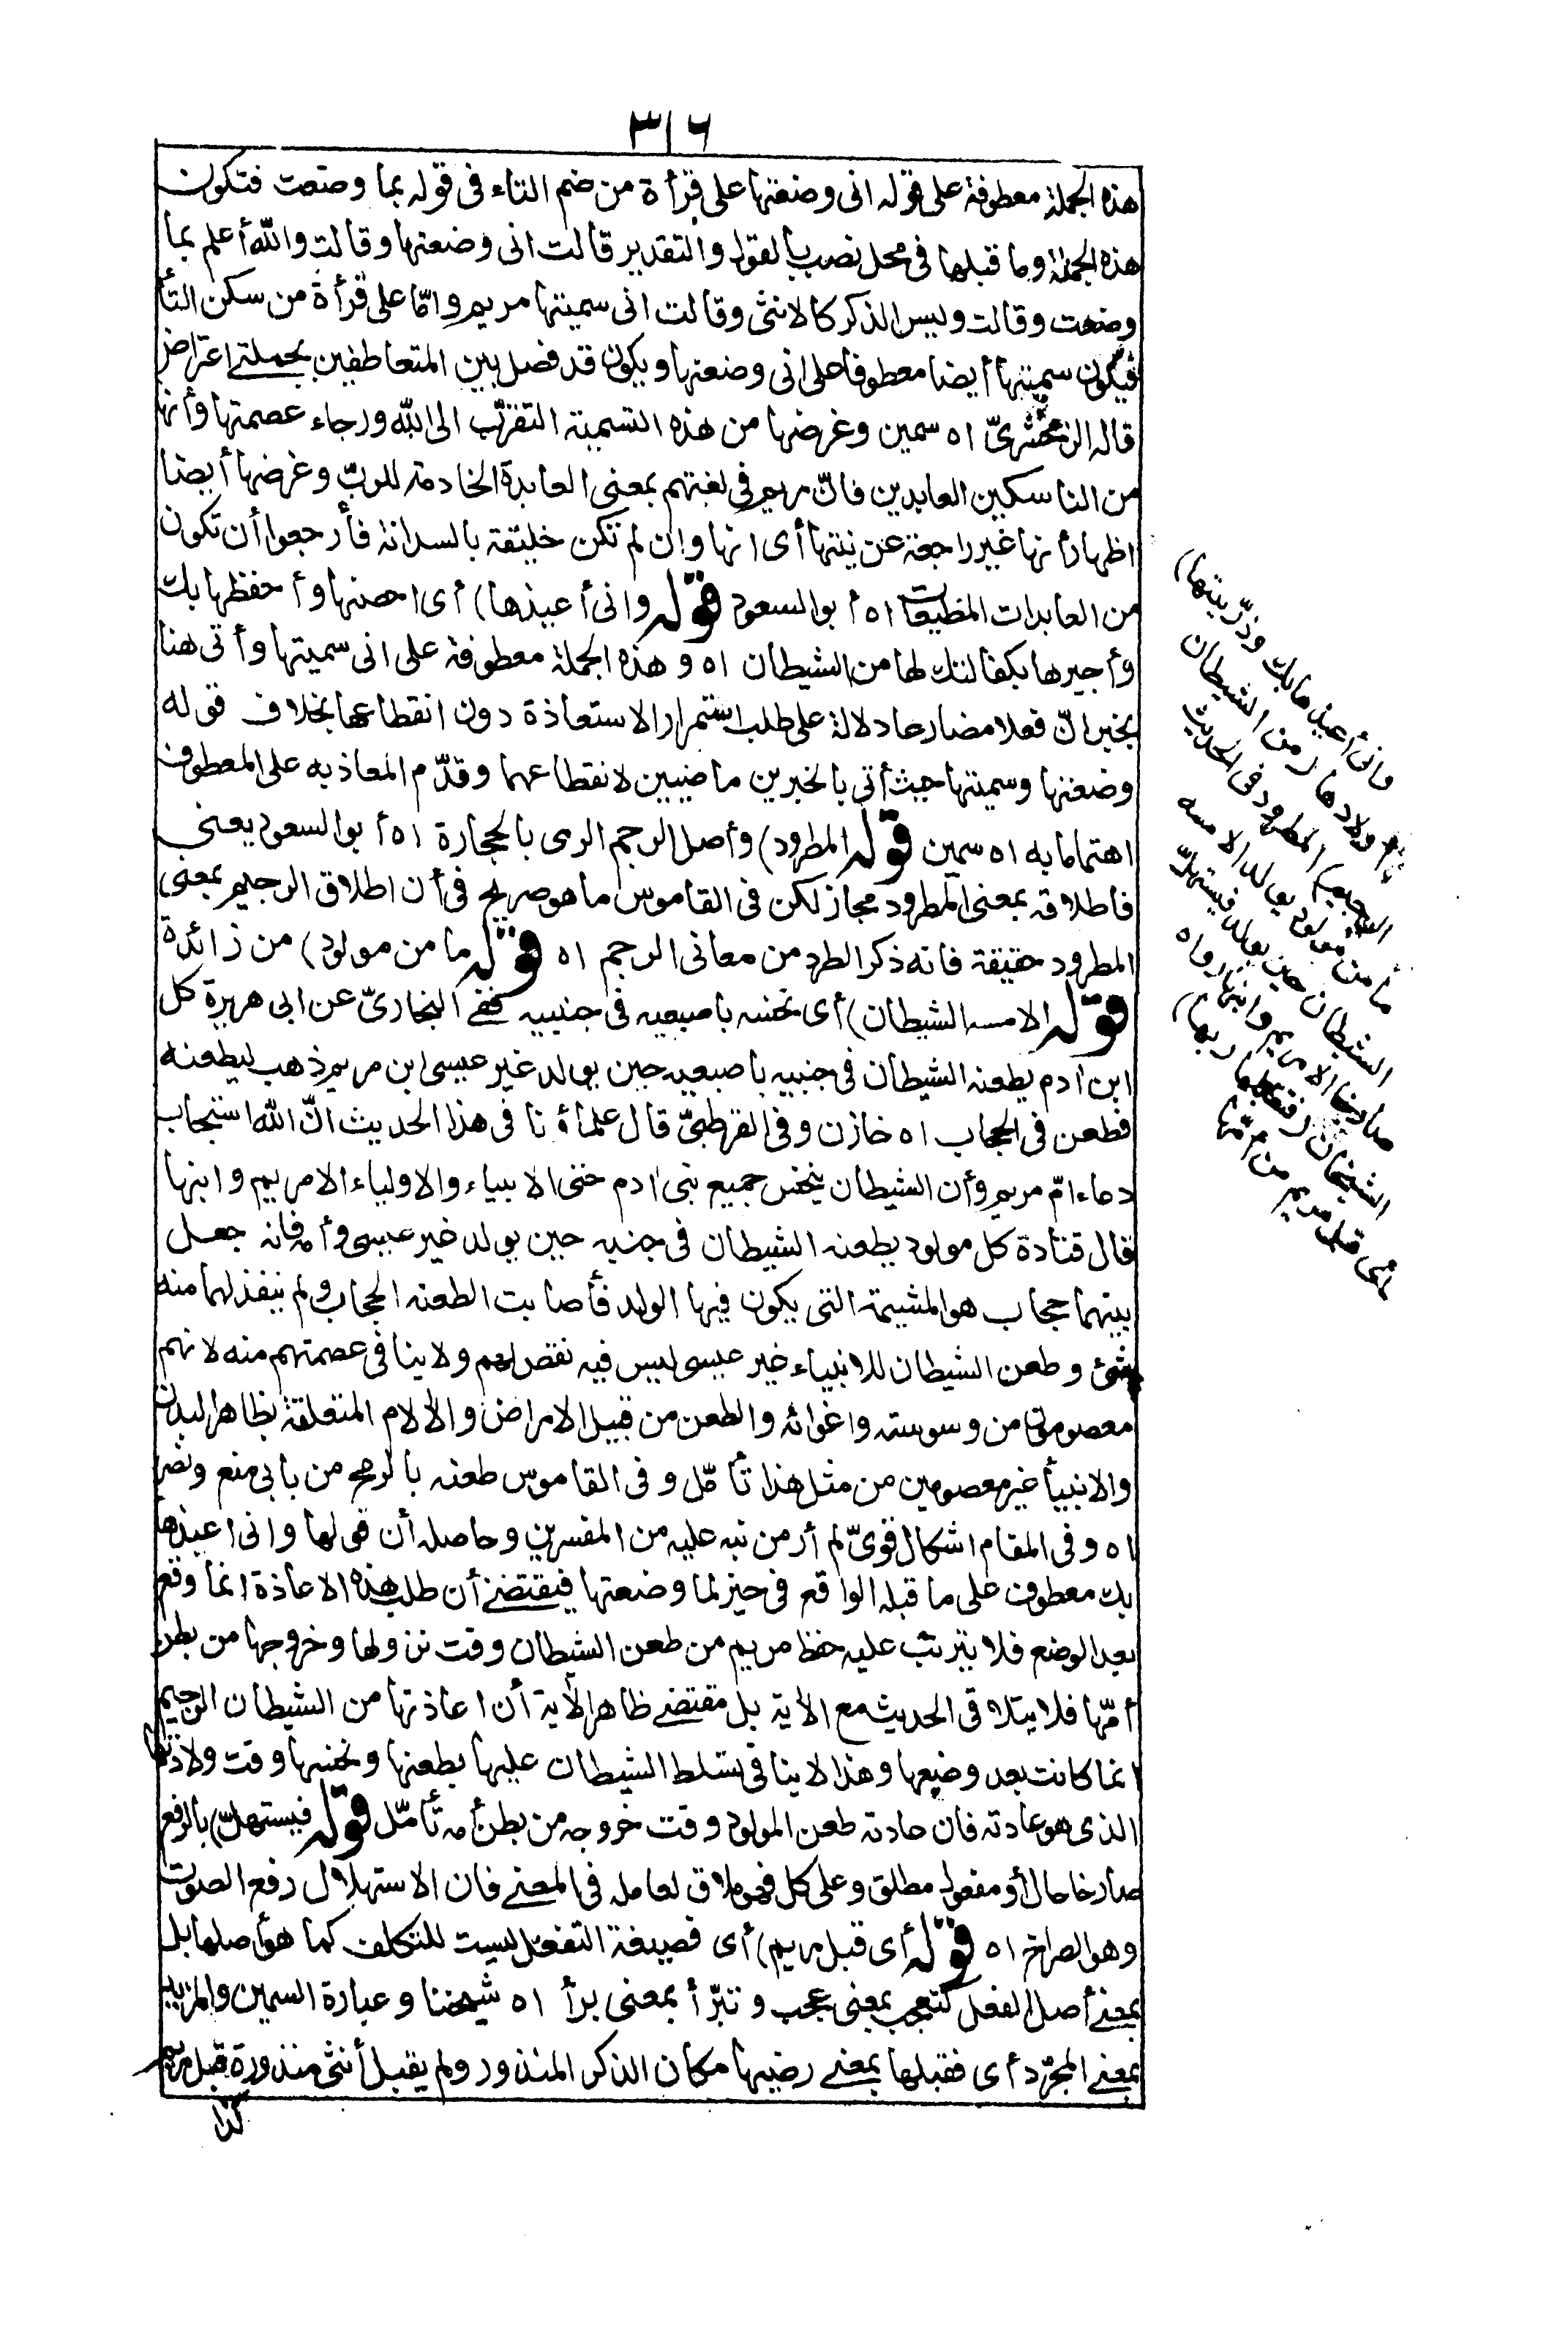 ٣١٦
هذه الجملة معطوفة على قوله انى وضعتها على قرأة من ضم التاء فى قوله بما وضعت فتكون
هذه الجملة وما قبلها فى محل نصب بالقول والتقدير قالت انى وضعتها وقالت والله أعلم بما
وضعت وقالت وليس الذكر كالانثى وقالت انى سميتها مريم وامّا على قرأة من سكن التأ
فيكون سميتها أيضا معطوفا على انى وضعتها ويكون قد فصل بين المتعاطفين بجملتى اعتراض
قاله الزمخشرىّ اه سمين وغرضها من هذه التسمية التقرّب الى الله ورجاء عصمتها وأنها
من الناسكين العابدين فانّ مريم فى لغتهم بمعنى العابدة الخادمة للربّ وغرضها أيضا
اظهار أنها غير راجعة عن نيتها أى انها وان لم تكن خليقة بالسدانة فأرجعوا أن تكون
من العابدات المطيعات اه أبو السعود قوله وانى أعيذها) أى احصنها وأحفظها بك
وأجيرها بكفالتك لها من الشيطان اه وهذه الجملة معطوفة على انى سميتها وأتى هنا
بخبر انّ فعلا مضارعا دلالة على طلب استمرار الاستعاذة دون انقطاعها بخلاف قوله
وضعتها وسميتها حيث أتى بالخبرين ماضيين لانقطاعهما وقدّم المعاذ به على المعطوف
اهتماما به اه سمين قوله المطرود) وأصل الرجم الرمى بالحجارة اه أبو السعود يعنى
فاطلاقه بمعنى المطرود مجاز لكن فى القاموس ما هو صريح فى أن اطلاق الرجيم بمعنى
المطرود حقيقة فانه ذكر الطرد من معانى الرجم اه قوله ما من مولود) من زائدة
قوله الا مسه الشيطان) أى نخسه باصبعيه فى جنبيه ففى البخارىّ عن ابى هريرة كل
ابن ادم يطعنه الشيطان فى جنبيه باصبعيه حين يولد غير عيسى ابن مريم ذهب ليطعنه
فطعن فى الحجاب اه خازن وفى القرطبىّ قال علمأؤنا فى هذا الحديث انّ الله استجاب
دعاء امّ مريم وأن الشيطان ينخس جميع بنى ادم حتى الانبياء والاولياء الا مريم وابنها
قال قتادة كل مولود يطعنه الشيطان فى جنبه حين يولد غير عيسى وأمه فانه جعل
بينهما حجاب هو المشيمة التى يكون فيها الولد فأصابت الطعنه الحجاب ولم ينفذ لهما منه
شئ وطعن الشيطان للانبياء غير عيسى ليس فيه نقص لهم ولا ينافى عصمتهم منه لانهم
معصومون من وسوسته واغوائه والطعن من قبيل الامراض والألام المتعلقة بظاهر البدن
والانبيأ غير معصومين من مثل هذا تأمّل وفى القاموس طعنه بالرمح من بابى منع ونصر
اه وفى المقام اشكال قوىّ لم أر من نبه عليه من المفسرين وحاصله أن قولها وانى اعيذها
بك معطوف على ما قبله الواقع فى حيز لما وضعتها فيقتضى أن طلب هذه الاعاذة انما وقع
بعد الوضع فلا يترتب عليه حفظ مريم من طعن الشيطان وقت نزولها وخروجها من بطن
أمّها فلا يتلاقى الحديث مع الأية بل مقتضى ظاهر الأية أن اعاذتها من الشيطان الرجيم
انما كانت بعد وضعها وهذا لا ينافى تسلط الشيطان عليها بطعنها ونخسها وقت ولادتها
الذى هو عادته فان عادته طعن المولود وقت خروجه من بطن أمه تأمّل قوله فيستهلّ) بالرفع
صارخا حال أو مفعول مطلق وعلى كل فهو ملاق لعامله فى المعنى فان الاستهلال رفع الصوت
وهو الصراخ اه قوله أى قبل مريم) أى فصيغة التفعّل ليست للتكلف كما هو أصلها بل
بمعنى أصل الفعل كتعجب بمعنى عجب وتبرّأ بمعنى برأ اه شيخنا وعبارة السمين والمزيد
بمعنى المجرّد أى فقبلها بمعنى رضيها مكان الذكر المنذور ولم يقبل أنثى منذورة قبل مريم
كذا
وانى أعيذها بك وذرّيتها)
أولادها (من الشيطان
الرجيم) المطرود فى الحديث
ما من مولود يولد الا مسه
الشيطان حين يولد فيستهلّ
صارخا الا مريم وابنها رواه
الشيخان (فتقبلها ربها)
أى قبل مريم من أمّها